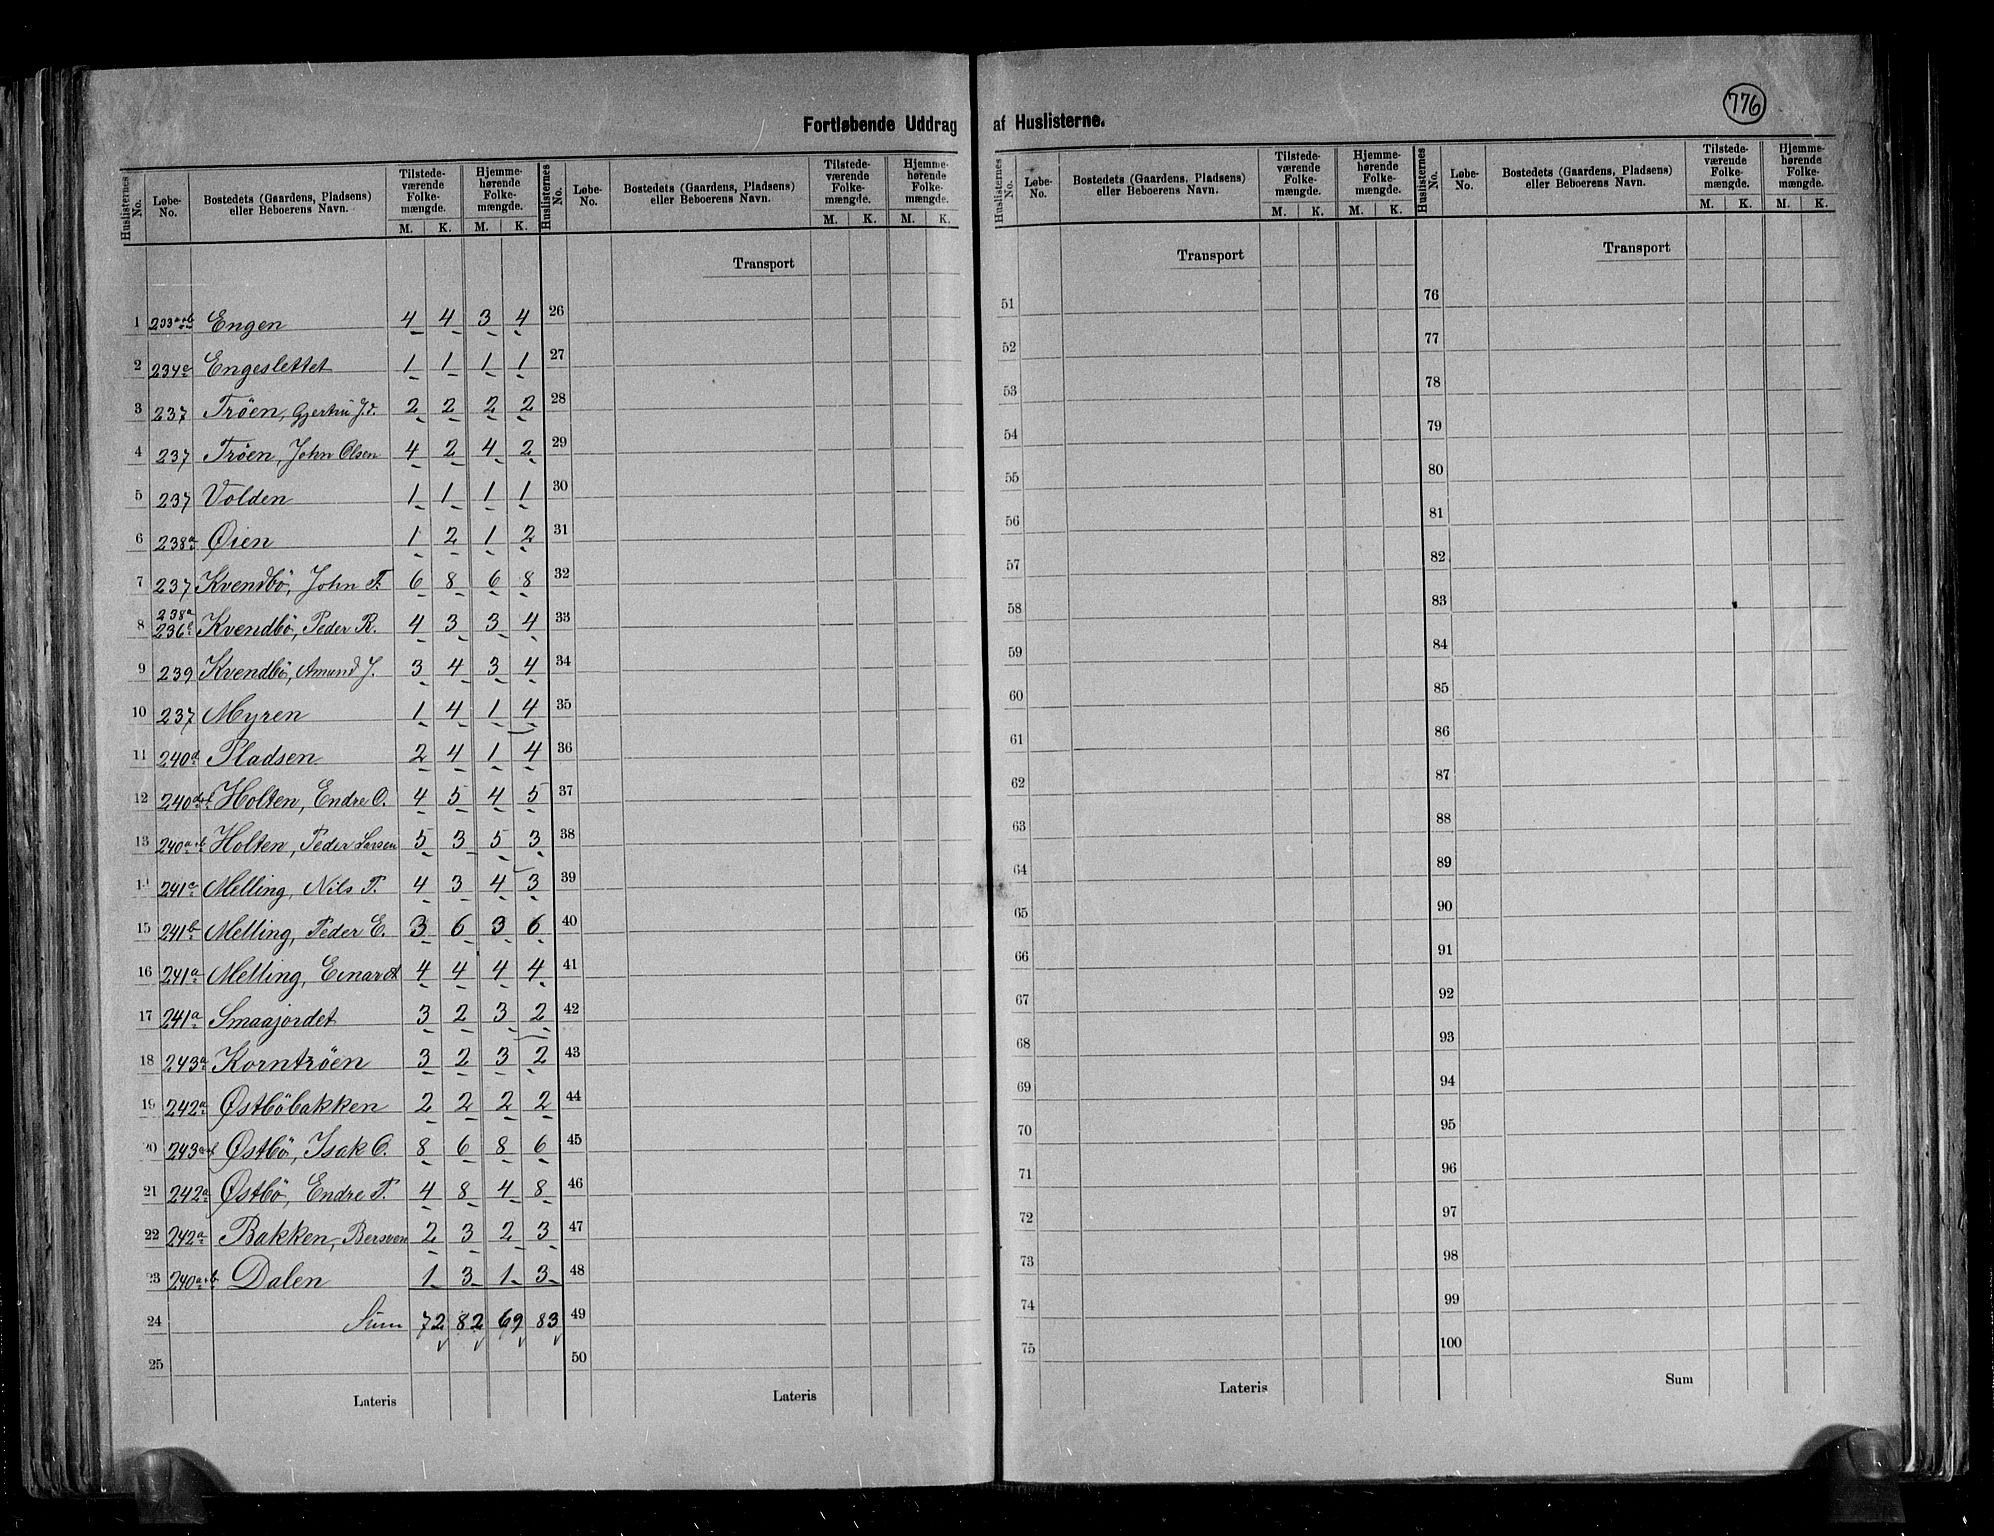 776
Fortløbende Uddrag af Huslisterne.
Huslisternes No. | Løbe-No. | Bostedets (Gaardens, Pladsens) eller Beboerens Navn. | Tilstedeværende Folkemængde. M. K. | Hjemmehørende Folkemængde. M. K.
1 233a+b Engen 4 4 3 4
2 234a Engeslettet 1 1 1 1
3 237 Tröen, Gjertru J.d. 2 2 2 2
4 237 Tröen, John Olsen 4 2 4 2
5 237 Volden 1 1 1 1
6 238a Øien 1 2 1 2
7 237 Kvendbö, John T. 6 8 6 8
8 238a 236b Kvendbö, Peder R. 4 3 3 4
9 239 Kvendbö, Amund J. 3 4 3 4
10 237 Myren 1 4 1 4
11 240d Pladsen 2 4 1 4
12 240 Holten, Endre O. 4 5 4 5
13 240a+b Holten, Peder Larsen 5 3 5 3
14 241c Melling, Nils P. 4 3 4 3
15 241b Melling, Peder E. 3 6 3 6
16 241a Melling, Einar A 4 4 4 4
17 241a Smaajordet 3 2 3 2
18 243a Korntröen 3 2 3 2
19 242a Østböbakken 2 2 2 2
20 243a Østbö, Isak O. 8 6 8 6
21 242a Østbö, Endre P. 4 8 4 8
22 242a Bakken, Bersven 2 3 2 3
23 240a+b Dalen 1 3 1 3
24 Sum 72 82 69 83
25
Lateris
Huslisternes No. | Løbe-No. | Bostedets (Gaardens, Pladsens) eller Beboerens Navn. | Tilstedeværende Folkemængde. M. K. | Hjemmehørende Folkemængde. M. K.
Transport
26
27
28
29
30
31
32
33
34
35
36
37
38
39
40
41
42
43
44
45
46
47
48
49
50
Lateris
Huslisternes No. | Løbe-No. | Bostedets (Gaardens, Pladsens) eller Beboerens Navn. | Tilstedeværende Folkemængde. M. K. | Hjemmehørende Folkemængde. M. K.
Transport
51
52
53
54
55
56
57
58
59
60
61
62
63
64
65
66
67
68
69
70
71
72
73
74
75
Lateris
Huslisternes No. | Løbe-No. | Bostedets (Gaardens, Pladsens) eller Beboerens Navn. | Tilstedeværende Folkemængde. M. K. | Hjemmehørende Folkemængde. M. K.
Transport
76
77
78
79
80
81
82
83
84
85
86
87
88
89
90
91
92
93
94
95
96
97
98
99
100
Sum